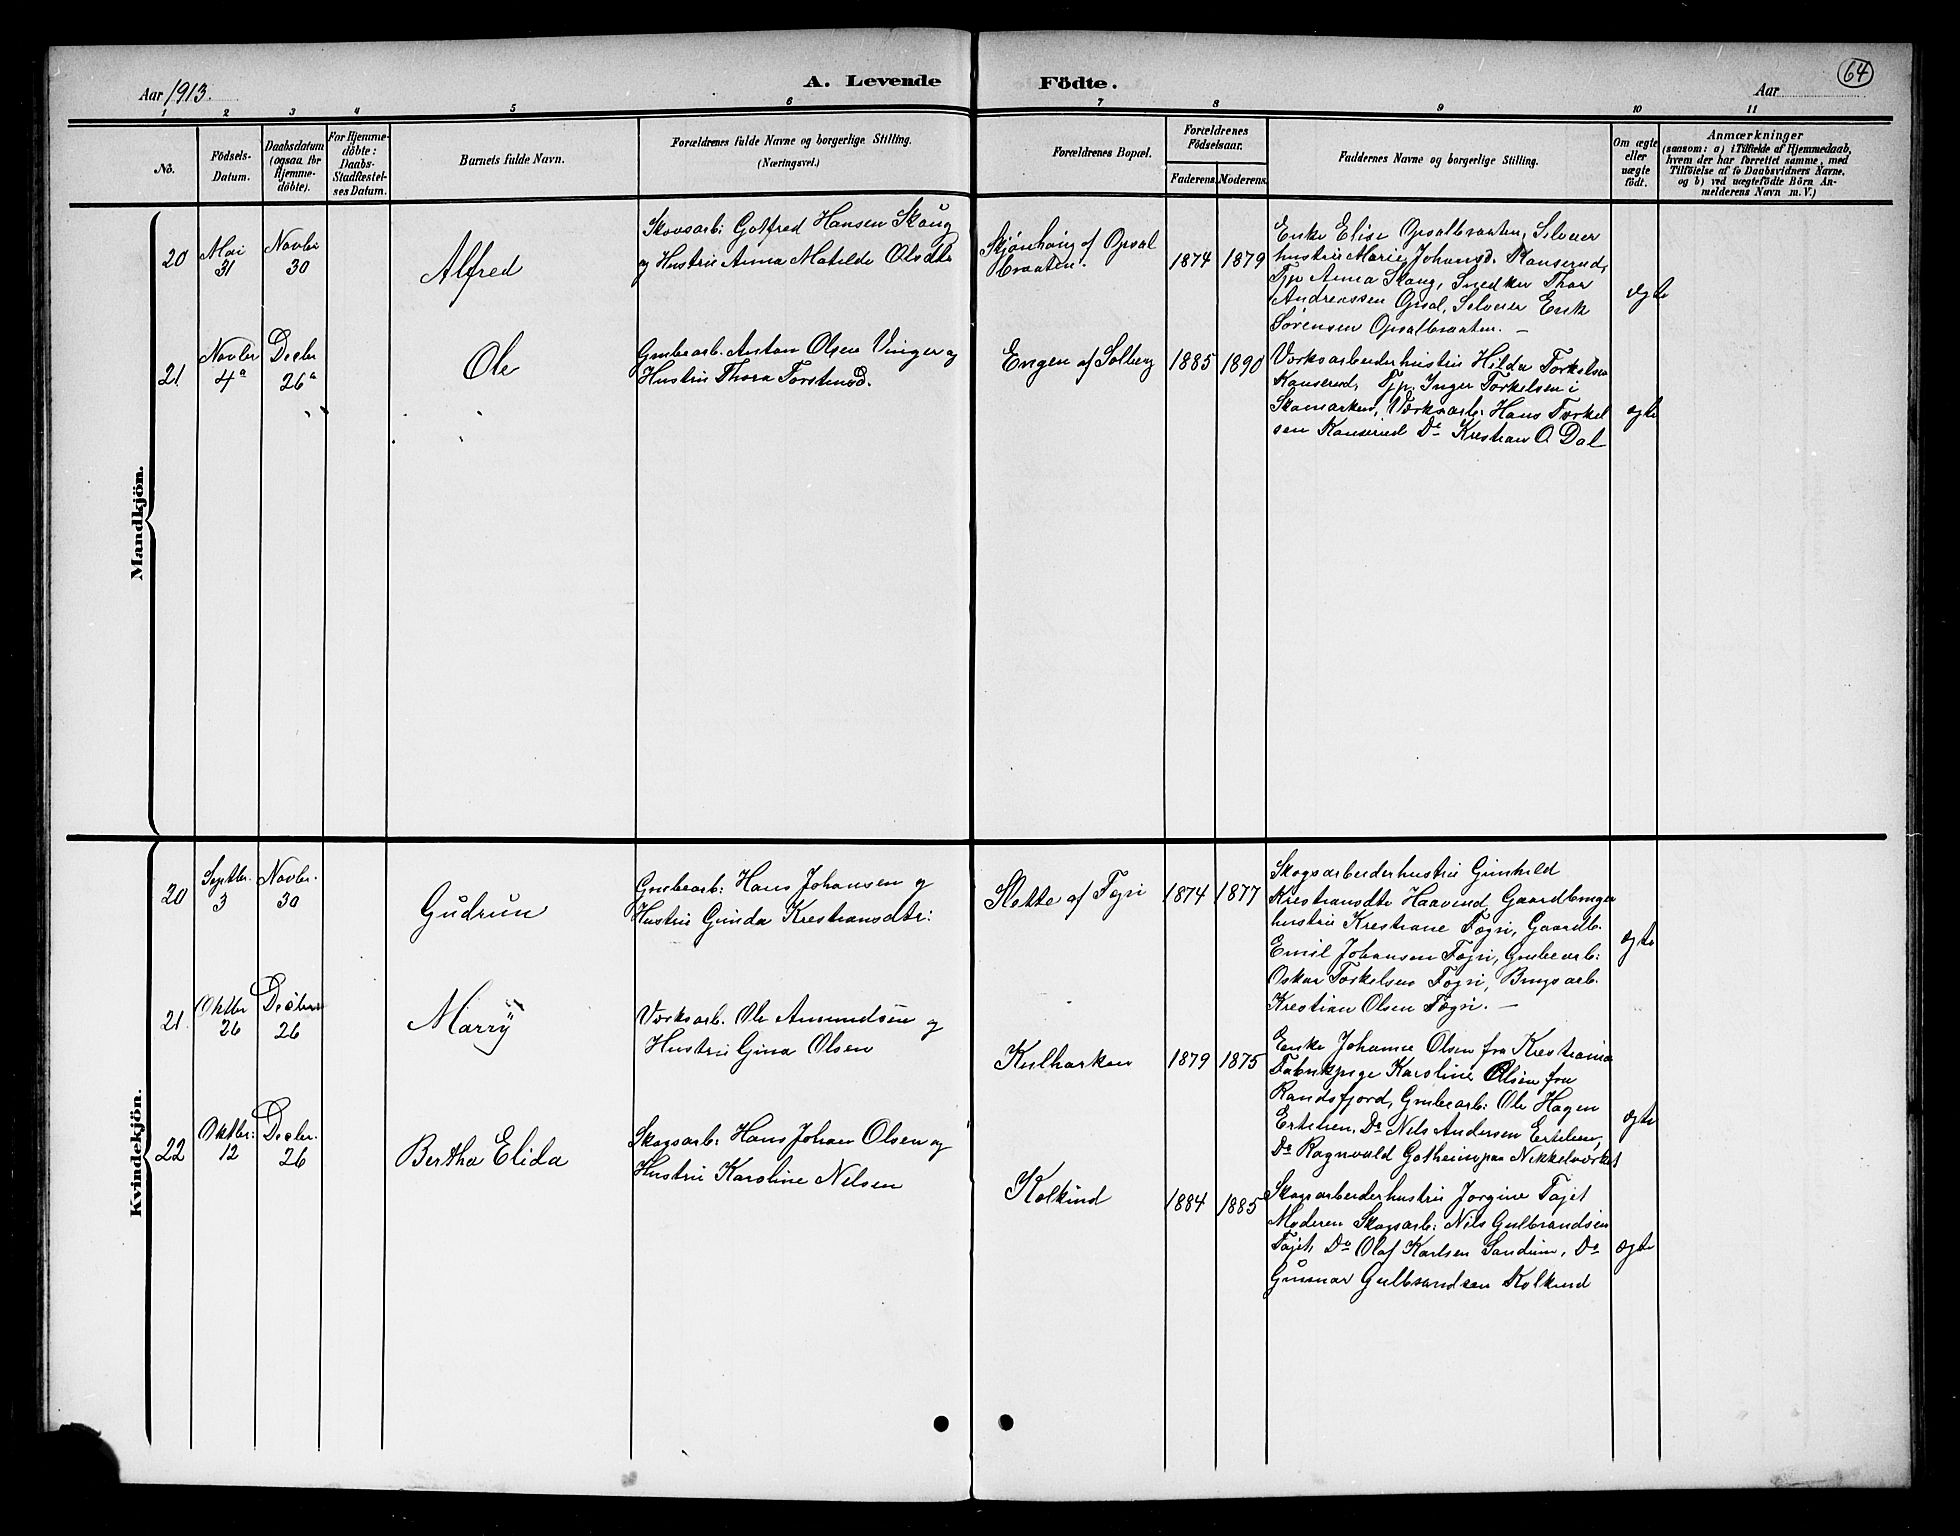 64
Aar 1913.
A. Levende Födte.
Aar
1 2 3 4 5 6 7 8 9 10 11
No.
Födsels-Datum.
Daabsdatum (ogsaa for Hjemme-döbte).
For Hjemme-döbte: Daabs-Stadfæstel-ses Datum.
Barnets fulde Navn.
Forældrenes fulde Navne og borgerlige Stilling. (Næringsvei.)
Forældrenes Bopæl.
Forældrenes Födselsaar.
Faderens. Moderens.
Faddernes Navne og borgerlige Stilling.
Om ægte eller uægte födt.
Anmærkninger
(saasom: a) i Tilfælde af Hjemmedaab,
hvem der har forrettet samme, med
Tilföielse af to Daabsvidners Navne,
og b) ved uægtefödte Börn An-
melderens Navn m. V.)
Mandkjön.
20
Mai 31
Novbr 30
Alfred
Skovsarb: Gotfred Hansen Skaug
og Hustru Anna Matilde Olsdtr
Skjønhaug af Opsal
braaten.
1874 1879
Enke Elise Opsalbraaten, Selveier
hustru Marie Johansd. Kanserud,
Tjp Anna Skaug, Snedker Thor
Andreassen Opsal, Selveier Enk
Sørensen Opsalbraaten. —
ægte
21
Novbr 4a
Decbr 26a
Ole
Grubearb. Anton Olsen Vinger og
Hustru Thora Torstensd.
Engen af Solberg
1885 1890
Værksarbeiderhustru Hilda Torkelsen
Kanserud, Tjp. Inger Torkelsen i
Skamarken, Værksarb: Hans Torkel
sen Kanserud Do Krestian O Dal
ægte
Kvindekjön.
20
Septbr. 3
Novbr. 30
Gudrun
Grubearb: Hans Johansen og
Hustru Gunda Krestiansdtr:
Slette af Tøgri
1874 1877
Skogsarbeiderhustru Gunhild
Krestiansdtr Haavind, Gaardbruger
hustru Krestiane Tøgri, Gaardb.
Emil Johansen Tøgri, Grubearb:
Oskar Torkelsen Tøgri, Brugsarb.
Krestian Olsen Tøgri. —
ægte
21.
Oktbr 26
Decbr 26
Marry
Værksarb. Ole Amundsen og
Hustru Gina Olsen
Kulharken
1879 1875
Enke Johanne Olsen fra Krestiania
Fabrikpige Karoline Olsen fra
Randsfjord, Grubearb: Ole Hagen
Ertelien, Do Nils Andersen Ertelien,
Do Ragnvald Gotheim paa Nikkelværket
ægte
22
Oktbr: 12
Decbr. 26
Bertha Elida
Skogsarb: Hans Johan Olsen og
Hustru Karoline Nilsen
Kolkind
1884 1885
Skogsarbeiderhustru Jorgine Tajet
Moderen Skogsarb: Nils Gulbrandsen
Tajet, Do Olaf Karlsen Sandum, Do
Gunnar Gulbrandsen Kolkind
ægte